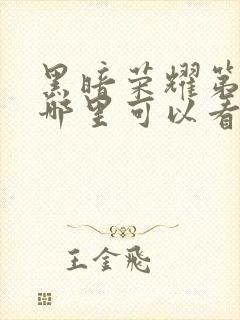 黑暗荣耀第
哪里可以看
王金飛